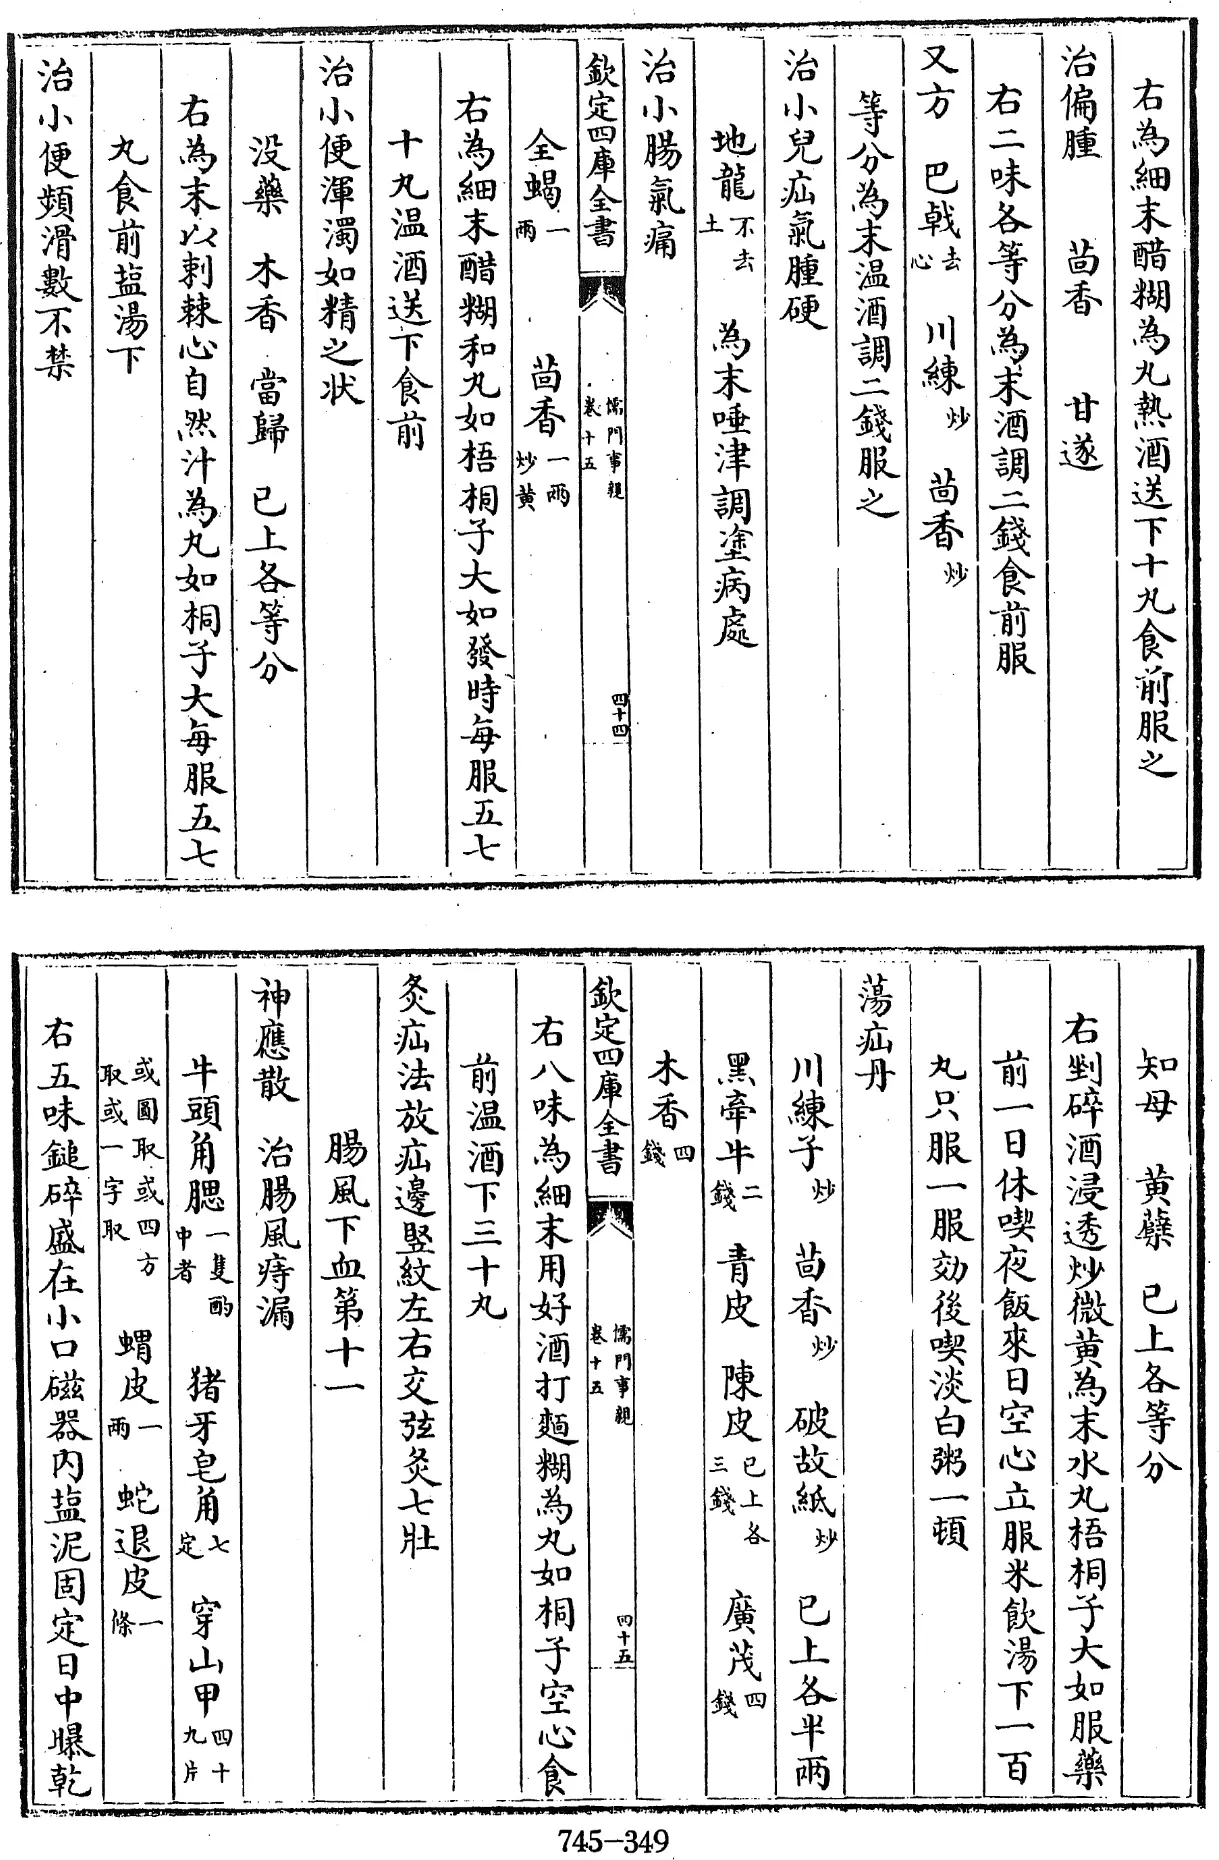 右為細末醋糊為丸熱酒送下十九食前服之
治偏腫　茴香　甘遂
右二味各等分為末酒調二錢食前服
又方　巴戟去心　川練炒　茴香炒
等分為末温酒調二錢服之
治小兒疝氣腫硬
地龍不去土　為末唾津調塗病處
治小腸氣痛
欽定四庫全書　儒門事親卷十五　四十四
全蝎一兩　茴香一兩炒黄
右為細末醋糊和丸如梧桐子大如發時每服五七
十丸温酒送下食前
治小便渾濁如精之状
没藥　木香　當歸　已上各等分
右為末以刺棘心自然汁為丸如桐子大每服五七
丸食前塩湯下
治小便頻滑數不禁
知母　黄蘗　已上各等分
右剉碎酒浸透炒微黄為末水丸梧桐子大如服藥
前一日休喫夜飯來日空心立服米飲湯下一百
丸只服一服効後喫淡白粥一頓
蕩疝丹
川練子炒　茴香炒　破故紙炒　已上各半兩
黑牽牛二錢　青皮　陳皮已上各三錢　廣茂四錢
木香四錢
欽定四庫全書　儒門事親卷十五　四十五
右八味為細末用好酒打麵糊為丸如桐子空心食
前温酒下三十丸
灸疝法放疝邊竪紋左右交弦灸七壯
腸風下血第十一
神應散　治腸風痔漏
牛頭角腮一隻酌中者　猪牙皂角七定　穿山甲四十九片
或圓取或四方取或一字取　蝟皮一兩　蛇退皮一條
右五味鎚碎盛在小口磁器内塩泥固定日中曝乾
745-349